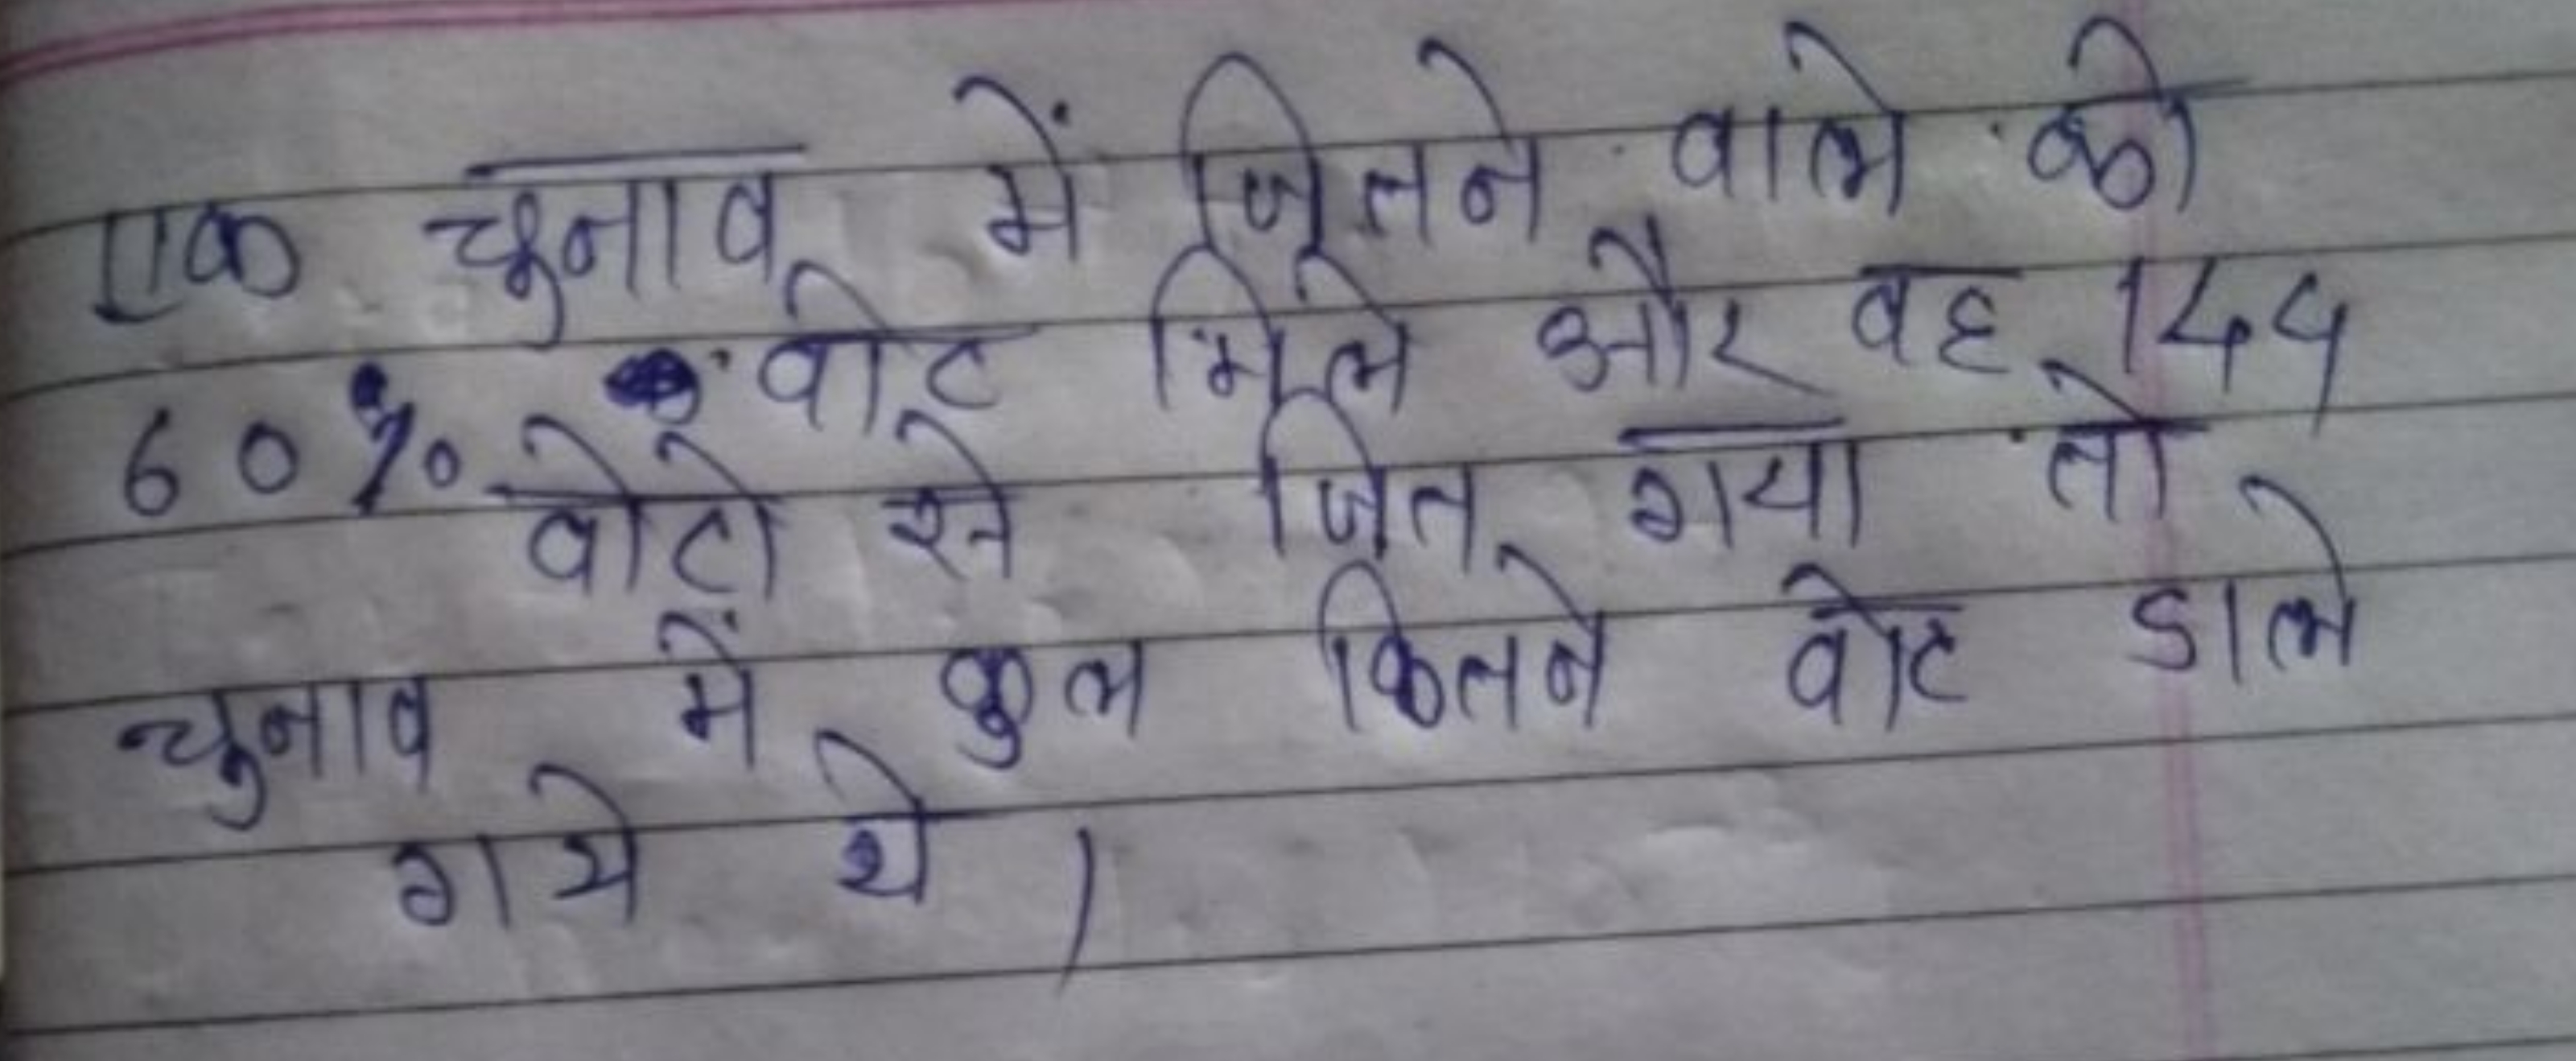 एक चुनाव में जितने वाले को
60% वोट मिले और वह 144
वोटो से जित गया तो
चुनाव में कुल कितने वोट डाले
गये थे।